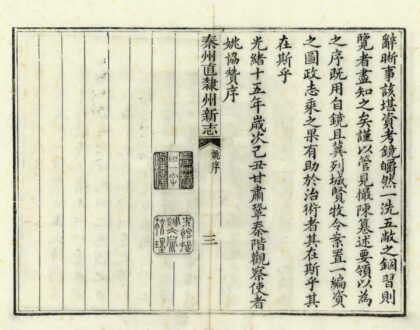 辭晰事該堪資考鏡皭然一洗五敝之錮習則
覽者盡知之矣謹以管見撮陳纂述要領以為
之序既用自鏡且冀列城賢牧令案置一編資
之圖政志乘之果有助於治術者其在斯乎其
在斯乎
光緒十五年歲次己丑甘肅鞏秦階觀察使者
姚協贊序
秦州直隸州新志
姚序
三